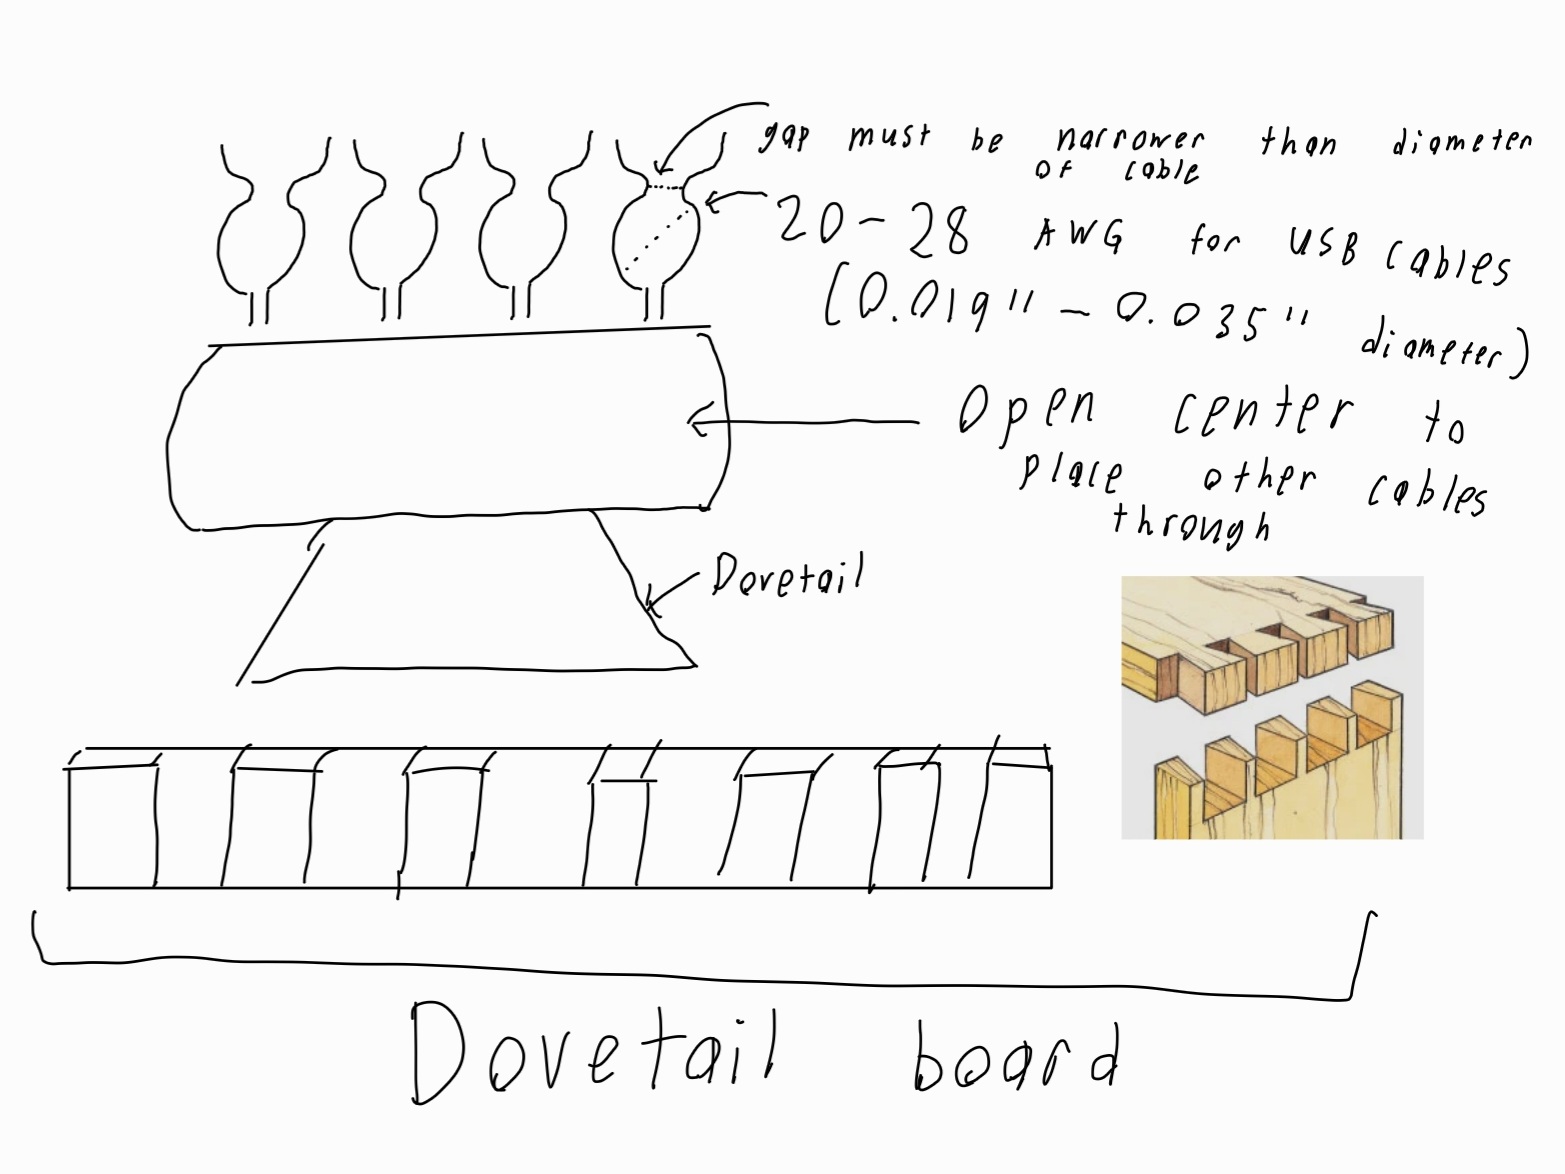 gap must be narrower than diameter
of cable
20-28 AWG for USB cables
(0.019" - 0.035" diameter)
Open center to
place other cables
through
Dovetail
Dovetail board